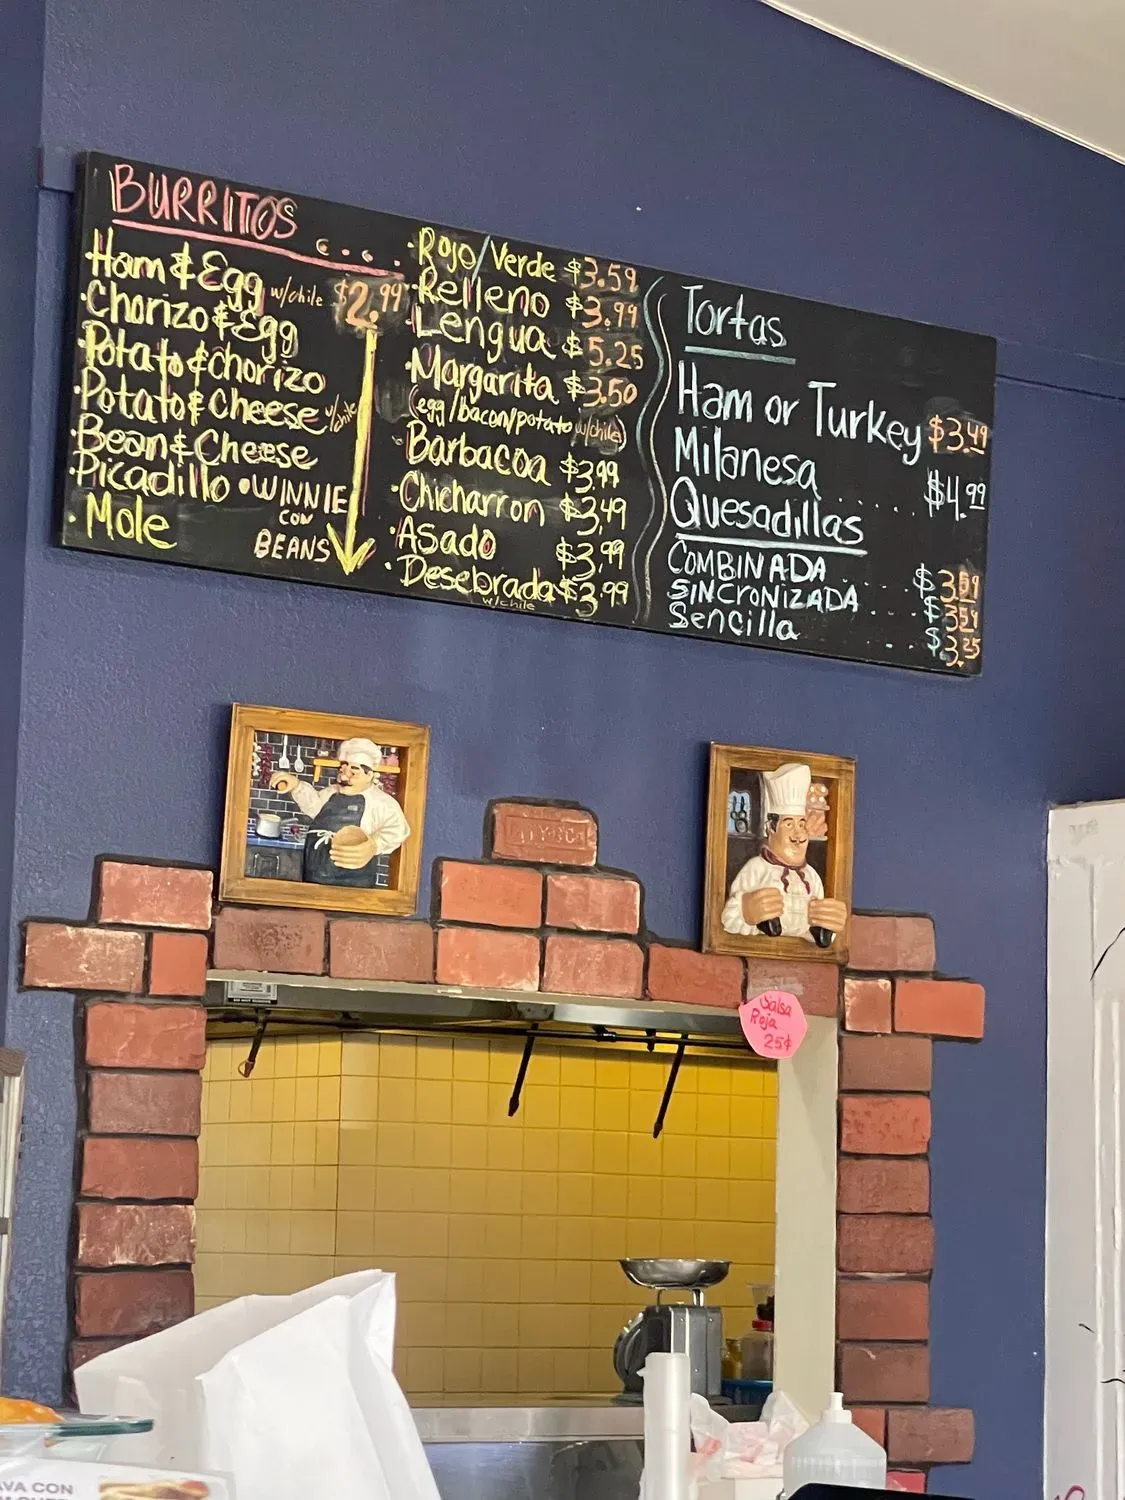 BURRITOS . . . .
Ham & Egg w/chile $2.99
· Chorizo & Egg
· Potato & chorizo
· Potato & Cheese w/chile
· Bean & Cheese
· Picadillo · WINNIE
CON
BEANS
· Mole
· Rojo/Verde $3.59
· Relleno $3.99
· Lengua $5.25
· Margarita $3.50
(egg/bacon/potato w/chile)
· Barbacoa $3.99
· Chicharron $3.49
· Asado $3.99
· Desebrada $3.99
w/chile
Tortas
Ham or Turkey $3.49
Milanesa . . . . . $4.99
Quesadillas
COMBINADA . . . . $3.59
SINCRONIZADA . . . $3.59
Sencilla . . . $3.25
Salsa
Roja
25¢
AVA CON